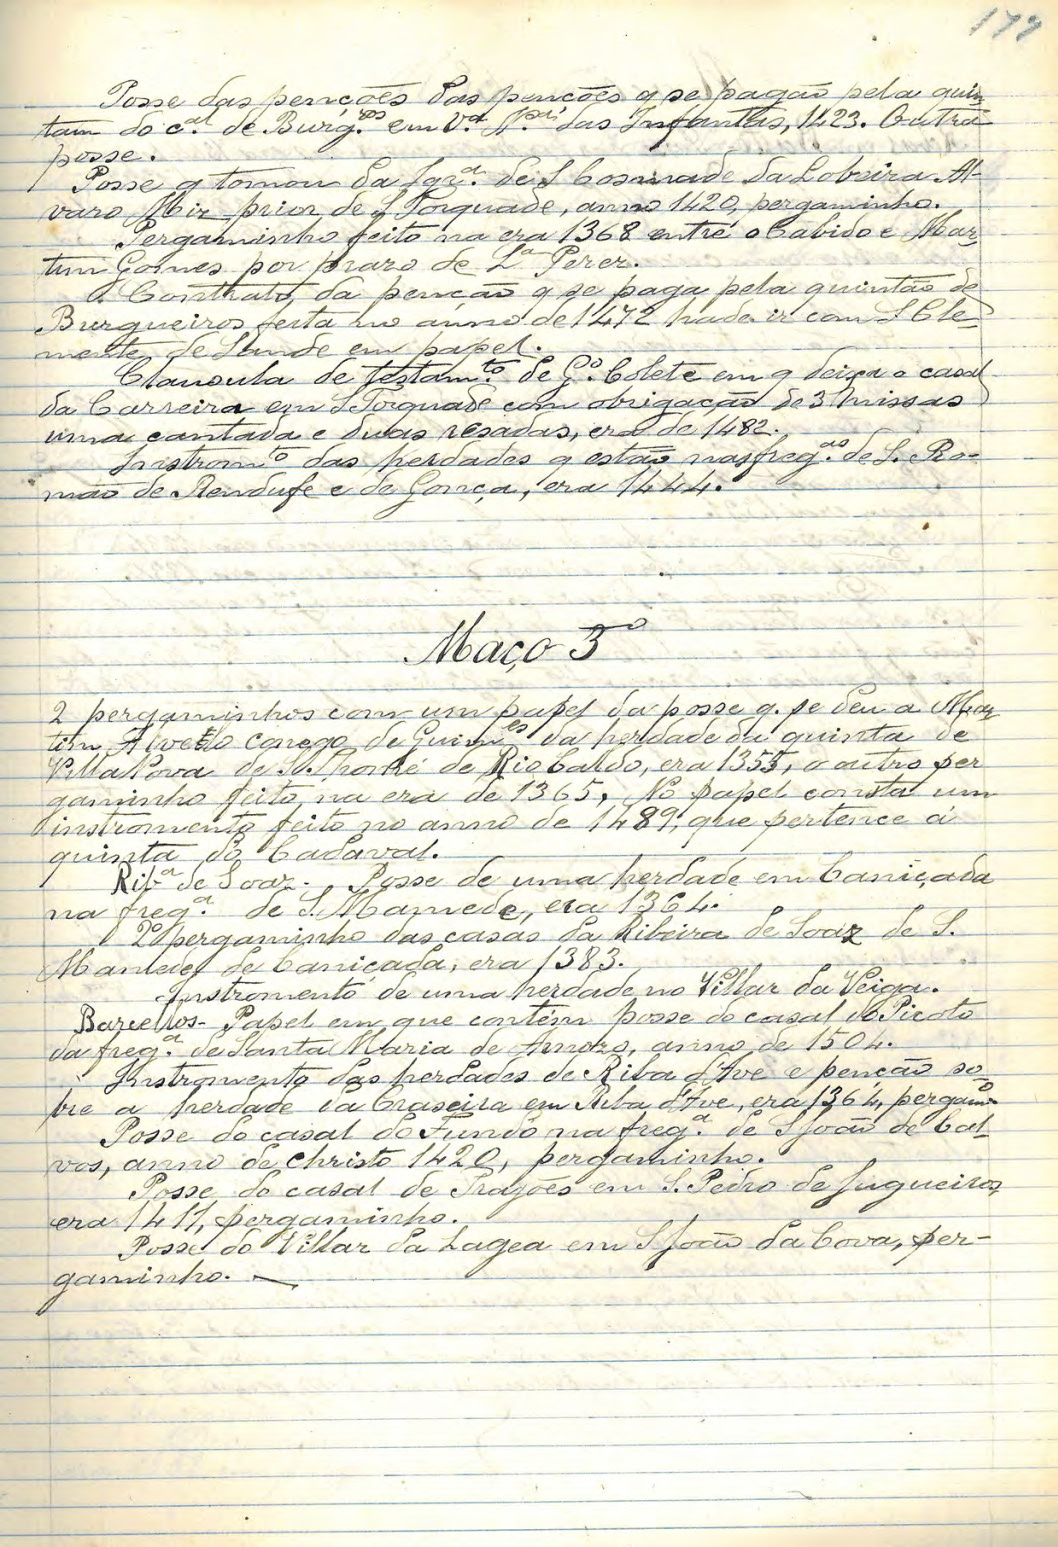 179
Posse das penções das penções q se pagão pela quin
tam do c.al de Burg.os em V.a N.a das Infantas, 1423. Outra
posse.
Posse q tomou da Igr.a de S Cosmade da Lobeira Al-
varo Miz prior de S Torquade, anno 1420, pergaminho.
Pergaminho feito na era 1368 entre o Cabido e Mar-
tim Gomes por prazo de L.a Perer.
Contrato da penção q se paga pela quintão de
Burgueiros feita no anno de 1472 hade ir com S Cle-
mente de Sande em papel.
Clausula de testam.to de G.o Colete em q deixa o casal
da Carreira em S Torquade com obrigação de 3 missas
uma cantada e duas resadas, era de 1482.
Instrom.to das herdades q estão nas freg.as de S. Ro-
mão de Rendufe e de Gonça, era 1444.
Maço 3º
2 pergaminhos com um papel da posse q. se deu a Mar
tim Alvello conego de Guim.es da herdade da quinta de
Villa Nova de S. Thomé de Rio Caldo, era 1355, o outro per
gaminho feito na era de 1365, No papel consta um
instromento feito no anno de 1489, que pertence á
quinta do Cadaval.
Rib.a de Soaz. Posse de uma herdade em Caniçada
na freg.a de S. Mamede, era 1364.
O 2º pergaminho das casas da Ribeira de Soaz de S.
Mamede de Caniçada, era 1383.
Instromento de uma herdade no Villar da Veiga.
Barcellos - Papel em que contém posse do casal do Picoto
da freg.a de Santa Maria de Amozo, anno de 1504.
Instromento das herdades de Riba d'Ave e penção so-
bre a herdade da Craseira em Riba d'Ave, era 1364, pergam.o
Posse do casal do Fundo na freg.a de S João de Cal-
vos, anno de Christo 1420, pergaminho.
Posse do casal de Trajões em S. Pedro de Jugueiros,
era 1411, pergaminho.
Posse do Villar da Lagea em S João da Cova, per-
gaminho.